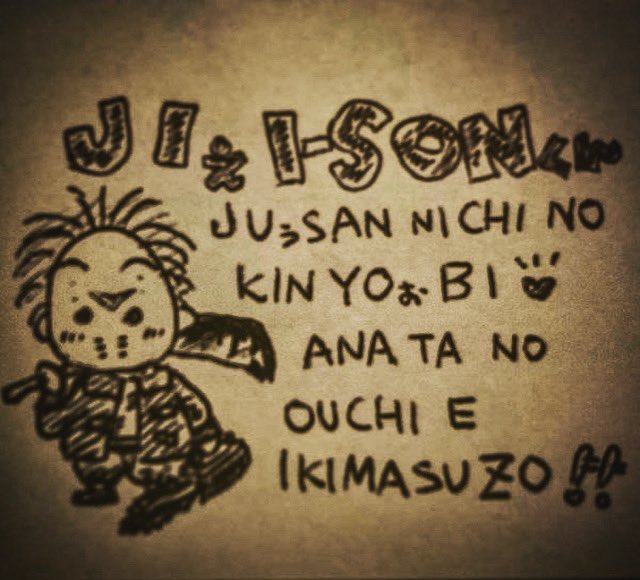 JIぇI-SONくん
JUぅSAN NICHI NO
KINYOぉBI♥
ANATA NO
OUCHI E
IKIMASUZO!!